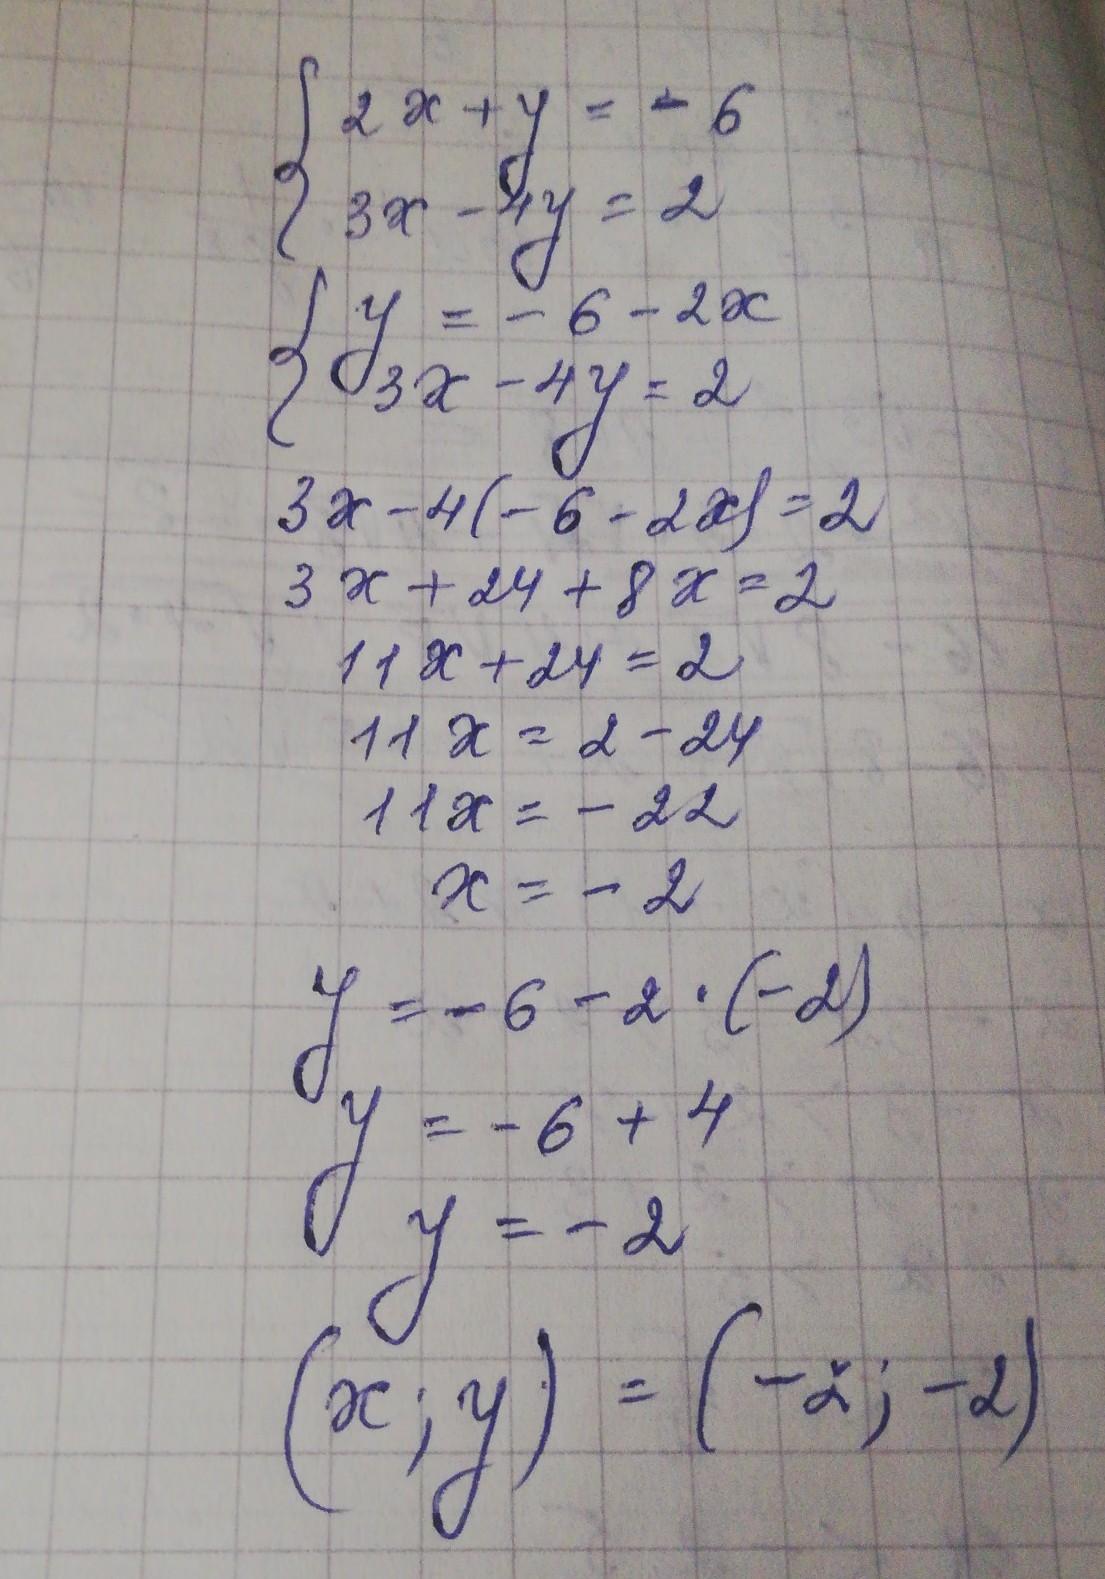 {2x + y = - 6
3x - 4y = 2
{y = - 6 - 2x
3x - 4y = 2
3x - 4(- 6 - 2x) = 2
3x + 24 + 8x = 2
11x + 24 = 2
11x = 2 - 24
11x = - 22
x = - 2
y = - 6 - 2 · (- 2)
y = - 6 + 4
y = - 2
(x; y) = (- 2; - 2)